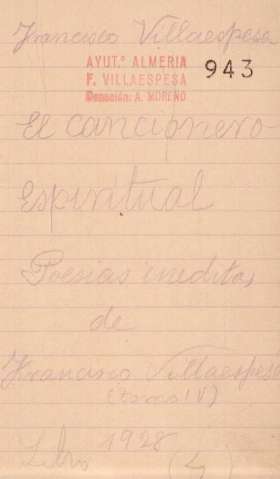 Francisco Villaespesa
AYUT.º ALMERIA
F. VILLAESPESA
Donación: A. MORENO
943
El cancionero
Espiritual
Poesias ineditas
de
Francisco Villaespesa
(tomo IV)
1928
Libro (4)